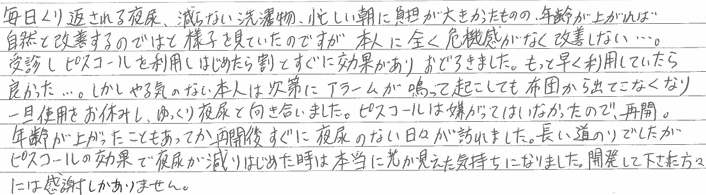 毎日くり返される夜尿、減らない洗濯物、忙しい朝に負担が大きかったものの、年齢が上がれば
自然と改善するのではと様子を見ていたのですが本人に全く危機感がなく改善しない…。
受診しピスコールを利用しはじめたら割とすぐに効果がありおどろきました。もっと早く利用していたら
良かった…。しかしやる気のない本人は次第にアラームが鳴って起こしても布団から出てこなくなり
一旦使用をお休みし、ゆっくり夜尿と向き合いました。ピスコールは嫌がってはいなかったので、再開。
年齢が上がったこともあってか再開後すぐに夜尿のない日々が訪れました。長い道のりでしたが
ピスコールの効果で夜尿が減りはじめた時は本当に光が見えた気持ちになりました。開発して下さった方々
には感謝しかありません。